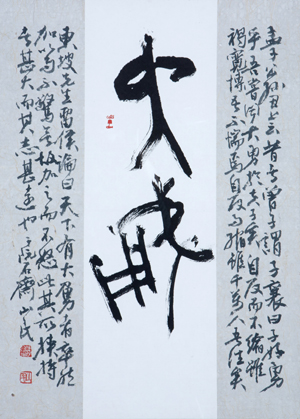 孟子公孫丑上云昔者曾子謂子襄曰子好勇
乎吾嘗聞大勇於夫子矣自反而不縮雖
褐寬博吾不惴焉自反而縮雖千萬人吾往矣
大勇
東坡先生留侯論曰天下有大勇者卒然
臨之而不驚無故加之而不怒此其所挾持
者甚大而其志甚遠也 石齋山民